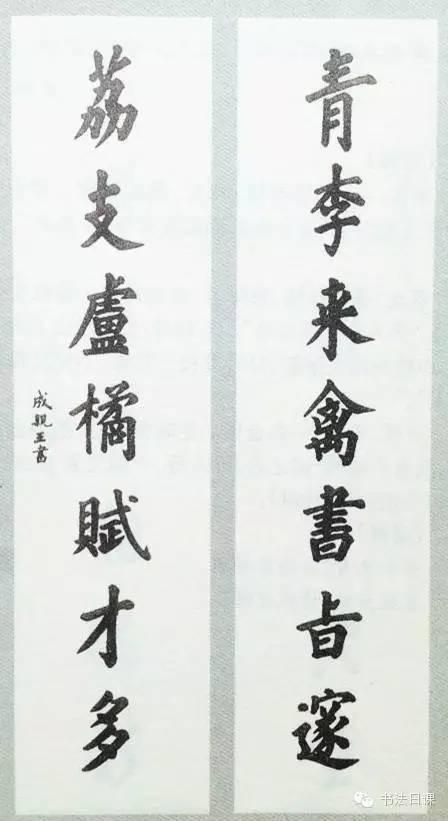 青李来禽書旨邃
荔支盧橘賦才多
成親王書
书法日课